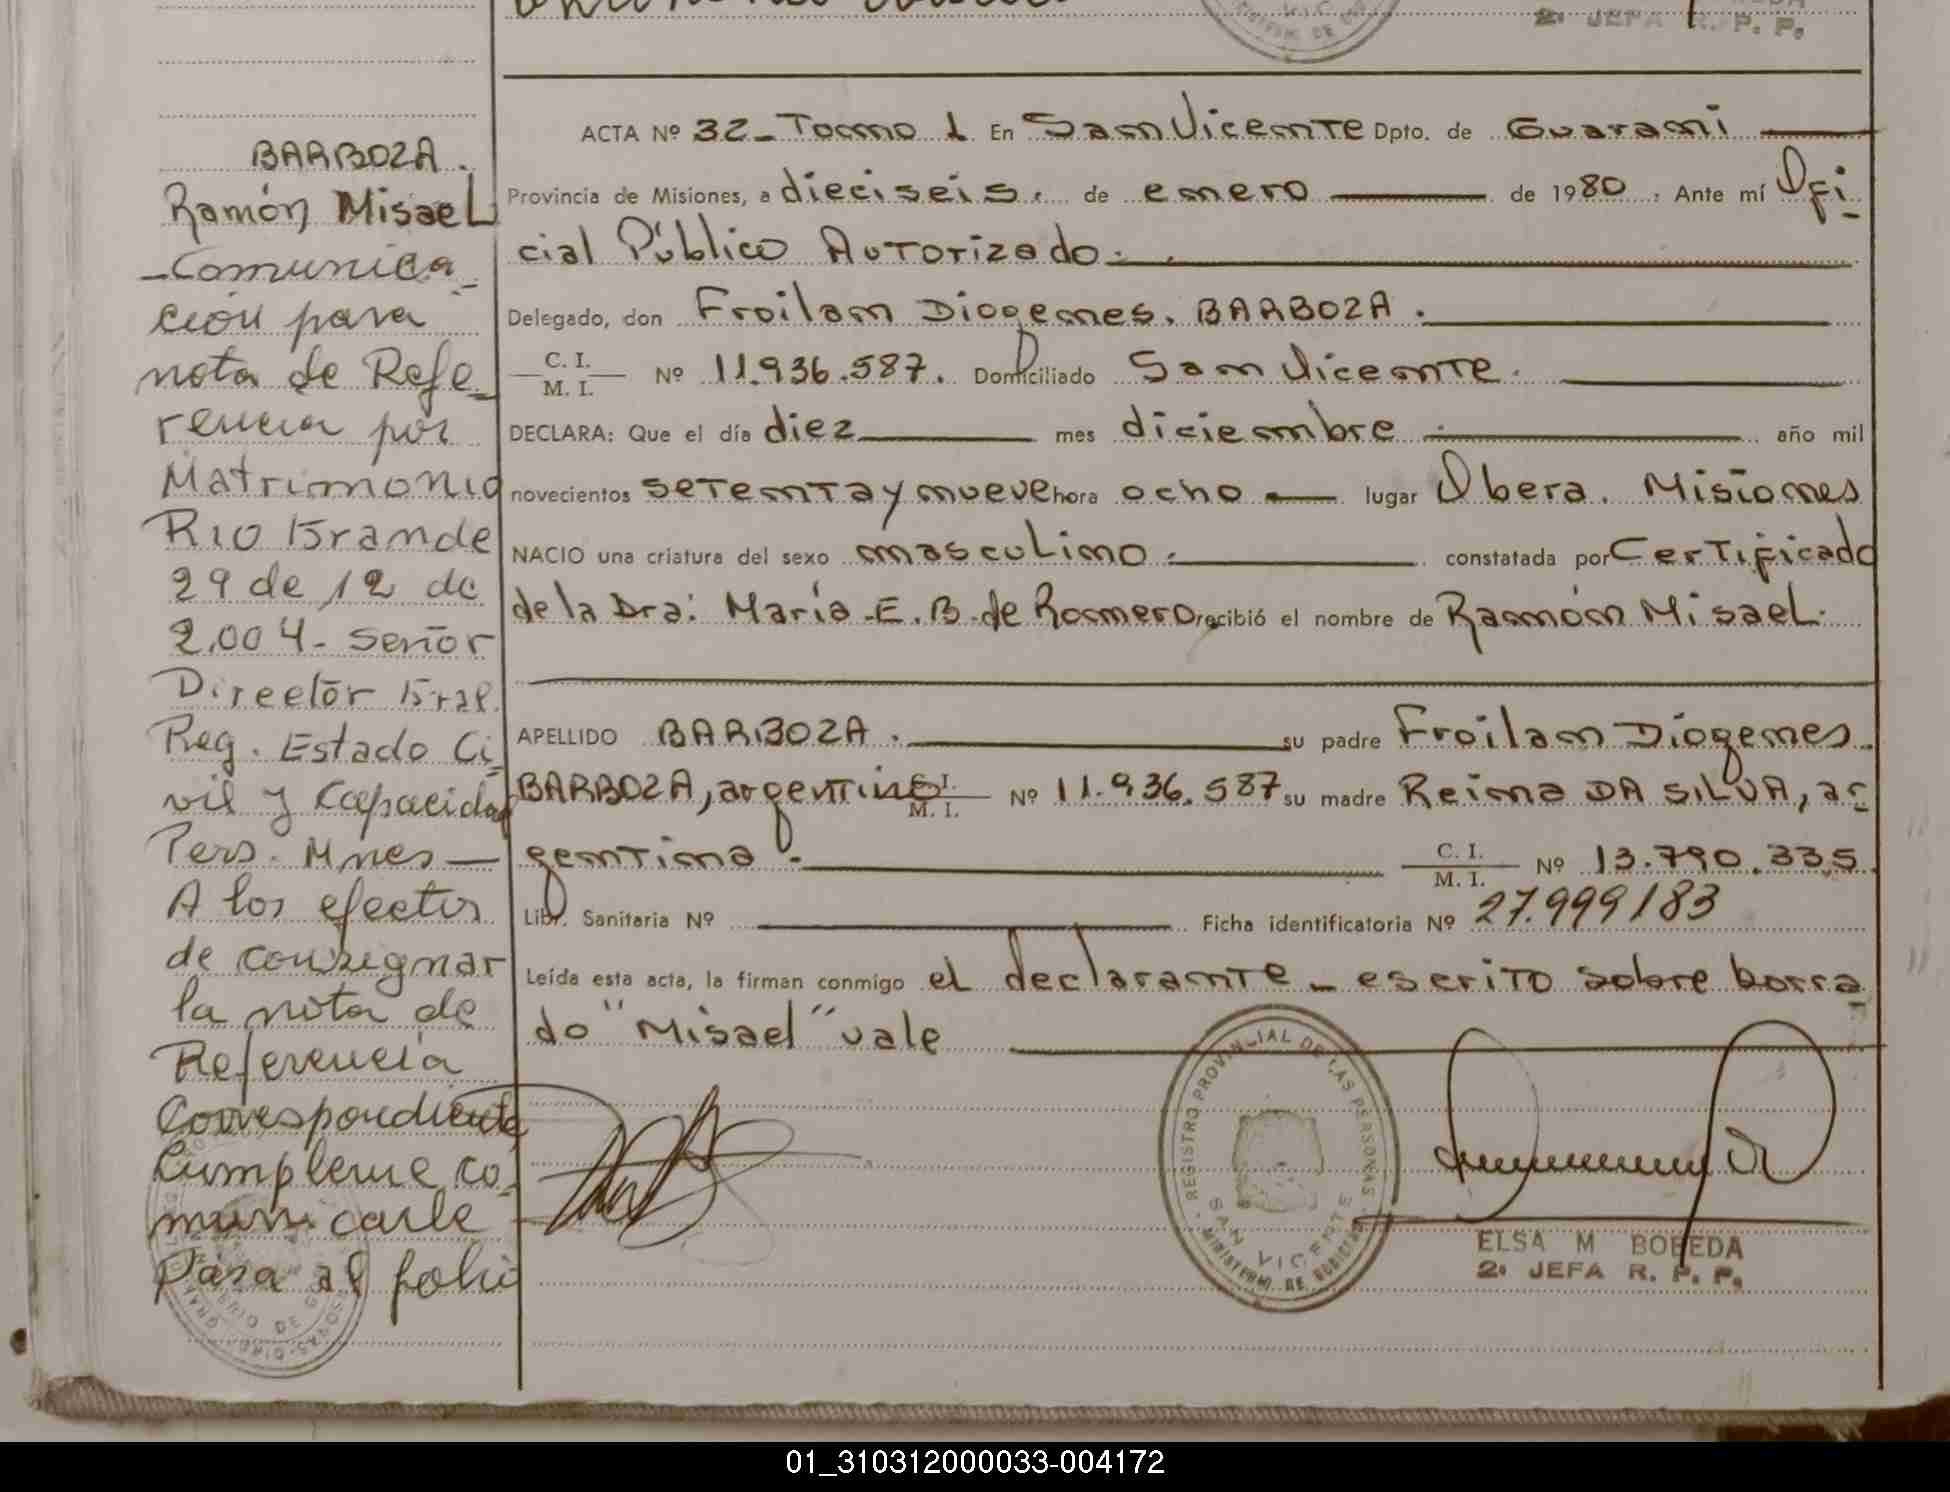 2º JEFA R. P. P.
BARBOZA.
Ramón Misael
-Comunica-
ción para
nota de Refe-
rencia por
Matrimonio
Rio Grande
29 de 12 de
2.004- Señor
Director Gral.
Reg. Estado Ci-
vil y Capacidad
Pers. Mnes—
A los efectos
de consegnar
la nota de
Referencia
Correspondiente
Cumpleme co-
municarle
Pasa al folio
ACTA Nº 32- Tomo 1 En San Vicente Dpto. de Guarani
Provincia de Misiones, a dieciseis. de enero de 1980. Ante mí Ofi-
cial Público Autorizado.
Delegado, don Froilan Diogenes. BARBOZA.
C. I.
M. I. Nº 11.936.587. Domiciliado San Vicente.
DECLARA: Que el día diez mes diciembre año mil
novecientos setenta y nueve hora ocho lugar Obera. Misiones
NACIO una criatura del sexo masculino. constatada por Certificado
de la Dra: María E. B. de Romero recibió el nombre de Ramón Misael.
APELLIDO BARBOZA. su padre Froilan Diogenes.
BARBOZA, argentino C. I. M. I. Nº 11.936.587 su madre Reina DA SILVA, ar-
gentina. C. I. M. I. Nº 13.790.335.
Libr. Sanitaria Nº Ficha identificatoria Nº 27.999183
Leída esta acta, la firman conmigo el declarante - escrito sobre borra-
do "Misael" vale
REGISTRO PROVINCIAL DE LAS PERSONAS
SAN VICENTE
MINISTERIO DE GOBIERNO
ELSA M BOBEDA
2º JEFA R. P. P.
01_310312000033-004172